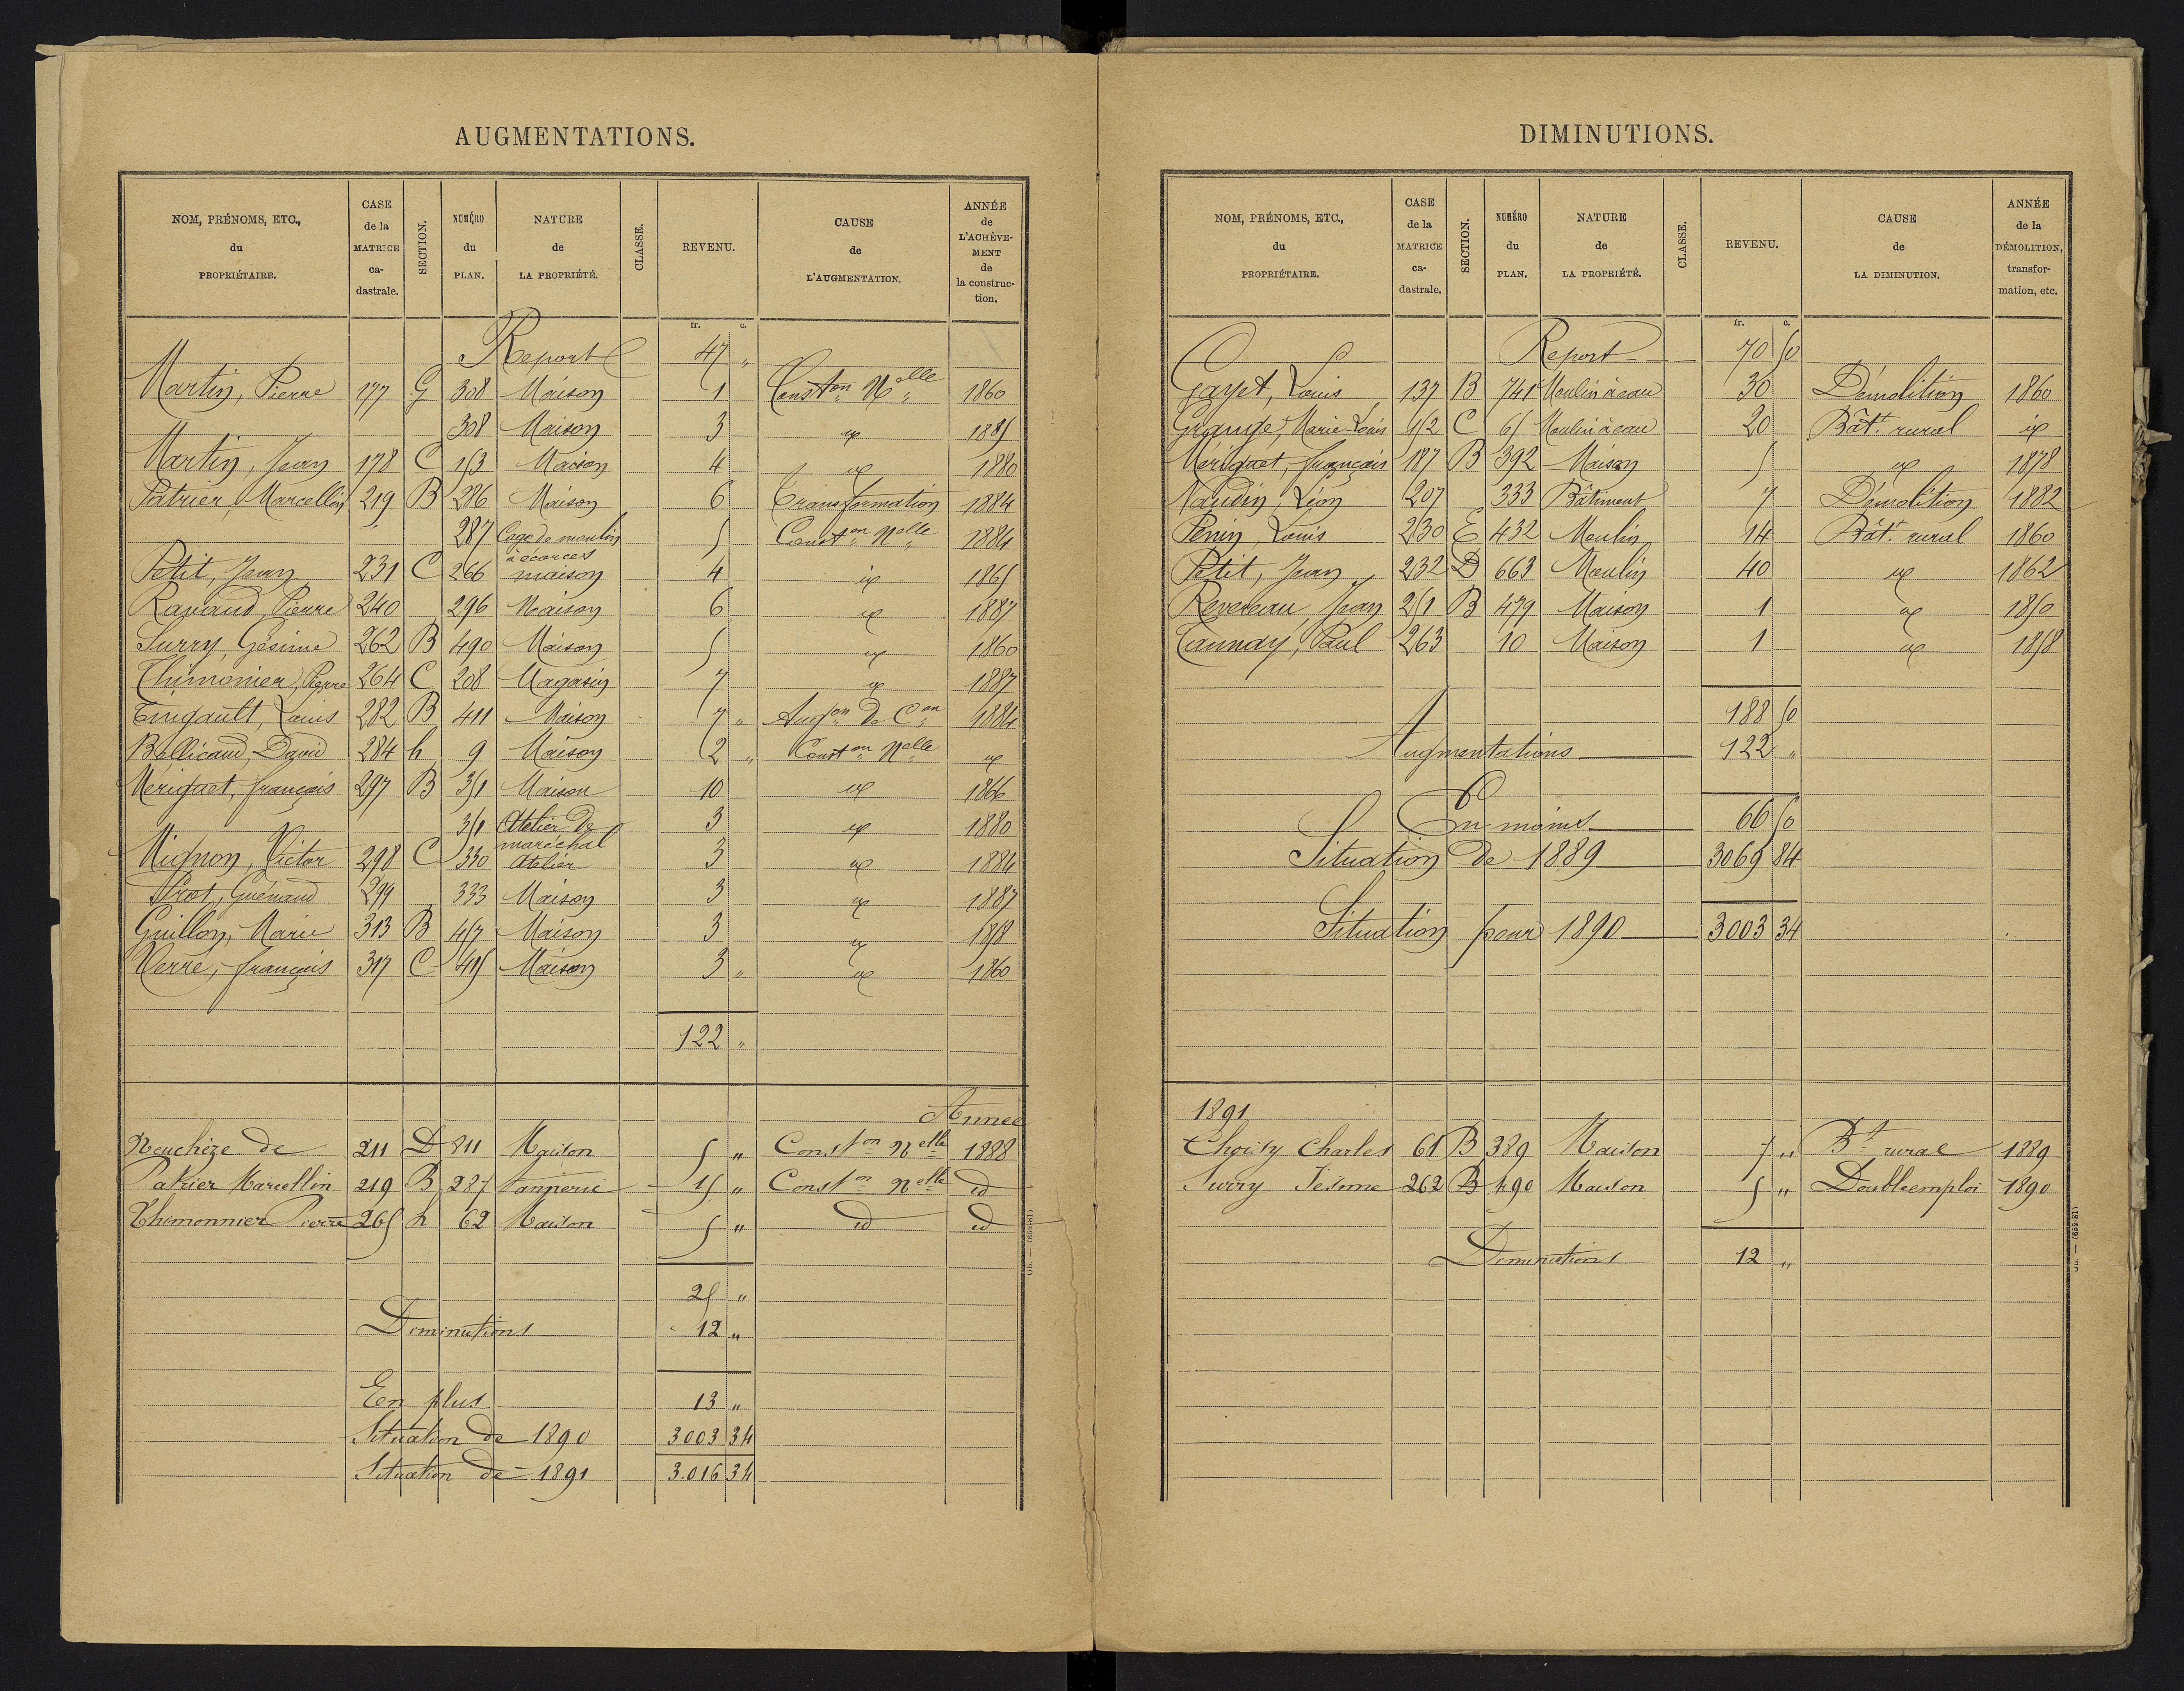 AUGMENTATIONS.
NOM, PRÉNOMS, ETC., du PROPRIÉTAIRE. CASE de la MATRICE ca-dastrale. SECTION. NUMÉRO du PLAN. NATURE de LA PROPRIÉTÉ. CLASSE. REVENU. CAUSE de L'AUGMENTATION. ANNÉE de L'ACHÈVE-MENT de la construc-tion.
fr. c.
Report 47 "
Martin, Pierre 177 G 308 Maison 1 Const.on Nelle 1860
308 Maison 3 id 1885
Martin, Jean 178 C 153 Maison 4 id 1880
Patrier, Marcellin 219 B 286 Maison 6 Transformation 1884
287 Cage de moulin à écorces 5 Const.on Nelle 1884
Petit, Jean 231 C 266 maison 4 id 1865
Ravaud, Pierre 240 296 Maison 6 id 1887
Surry, Gésime 262 B 490 Maison 5 id 1860
Thimonier, Pierre 264 C 208 Magasin 7 id 1887
Tingault, Louis 282 B 411 Maison 7 " Aug.on de C.on 1884
Bellicaud, David 284 h 9 Maison 2 " Const.on Nelle id
Mériguet, françois 297 B 351 Maison 10 id 1866
351 Atelier de maréchal 3 id 1880
Mignon, Victor 298 C 330 Atelier 3 id 1884
Prot, Guénaud 299 333 Maison 3 id 1887
Guillon, Marie 313 B 457 Maison 3 id 1858
Verre, françois 317 C 415 Maison 3 " id 1860
122 "
Année
Neuchèze de 211 D 811 Maison 5 " Const.on Nelle 1888
Patrier Marcellin 219 B 287 tannerie 15 " Const.on Nelle id
Thimonnier Pierre 265 h 62 Maison 5 " id id
25 "
Diminutions 12 "
En plus 13 "
Situation de 1890 3003 34
Situation de 1891 3.016 34
Ob. — (659-81)
DIMINUTIONS.
NOM, PRÉNOMS, ETC., du PROPRIÉTAIRE. CASE de la MATRICE ca-dastrale. SECTION. NUMÉRO du PLAN. NATURE de LA PROPRIÉTÉ. CLASSE. REVENU. CAUSE de LA DIMINUTION. ANNÉE de la DÉMOLITION, transfor-mation, etc.
fr. c.
Report 70 50
Gayet, Louis 137 B 741 Moulin à eau 30 Démolition 1860
Grange, Marie-Louis 152 C 65 Moulin à eau 20 Bât.t rural id
Mériguet, françois 187 B 392 Maison 5 id 1878
Naudin, Léon 207 333 Bâtiment 7 Démolition 1882
Penin, Louis 230 E 432 Moulin 14 Bât.t rural 1860
Petit, Jean 232 D 663 Moulin 40 id 1862
Revereau Jean 251 B 479 Maison 1 id 1850
Taunay, Paul 263 10 Maison 1 id 1858
188 50
Augmentations 122 "
En moins 66 50
Situation de 1889 3069 84
Situation pour 1890 3003 34
1891
Choisy Charles 61 B 389 Maison 7 " Bt rural 1889
Surry Jésime 262 B 490 Maison 5 " Double emploi 1890
Diminutions 12 "
Ob. — (659-81)